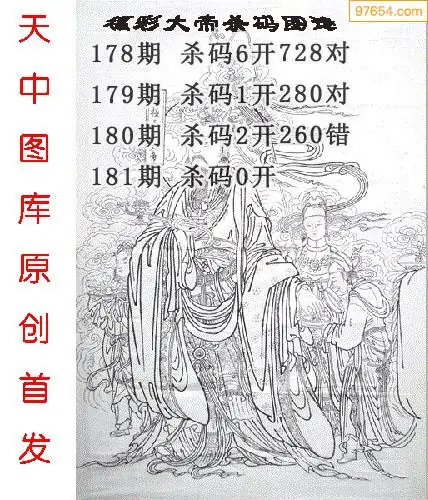 97654.com
福彩大帝杀码图
178期 杀码6开728对
179期 杀码1开280对
180期 杀码2开260错
181期 杀码0开
天中图库原创首发